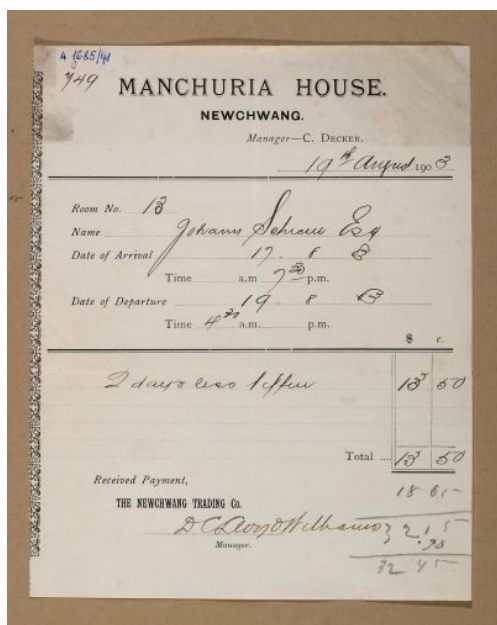 A 1685/41
749
MANCHURIA HOUSE.
NEWCHWANG.
Manager—C. DECKER.
19th August 1903
Room No. 13
Name Johann Esq
Date of Arrival 17. 8
Time a.m 7 30 p.m.
Date of Departure 19 8
Time 4 30 a.m. p.m.
$ c.
2 days less tiffin 13 50
Total .... 13 50
Received Payment,
THE NEWCHWANG TRADING Co.
Manager.